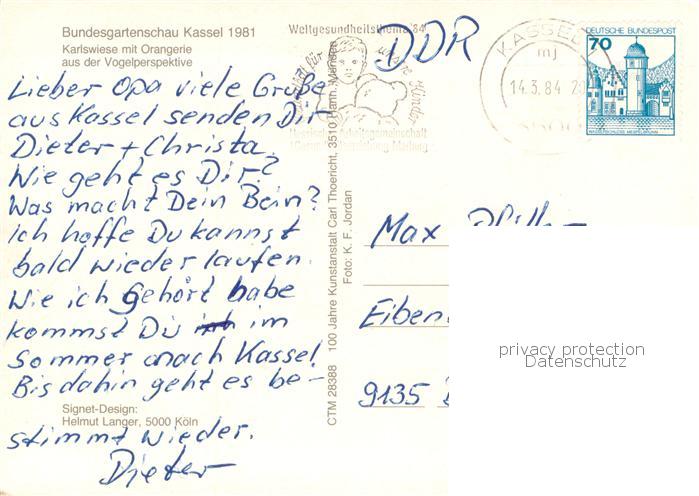 Bundesgartenschau Kassel 1981
Karlswiese mit Orangerie
aus der Vogelperspektive
Lieber Opa viele Grüße
aus Kassel senden Dir
Dieter + Christa.
Wie geht es Dir?
Was macht Dein Bein?
Ich hoffe Du kannst
bald wieder laufen.
Wie ich gehört habe
kommst Du im
Sommer nach Kassel.
Bis dahin geht es be-
stimmt wieder.
Dieter
Signet-Design:
Helmut Langer, 5000 Köln
CTM 28388 100 Jahre Kunstanstalt Carl Thoericht, 3510 Hann. Münden
Foto: K. F. Jordan
Weltgesundheitsthema '84
unsere Kinder
DDR
KASSEL
mj
14.3.84
DEUTSCHE BUNDESPOST
70
WASSERSCHLOSS MESPELBRUNN
Max
Eiben
9135
privacy protection
Datenschutz